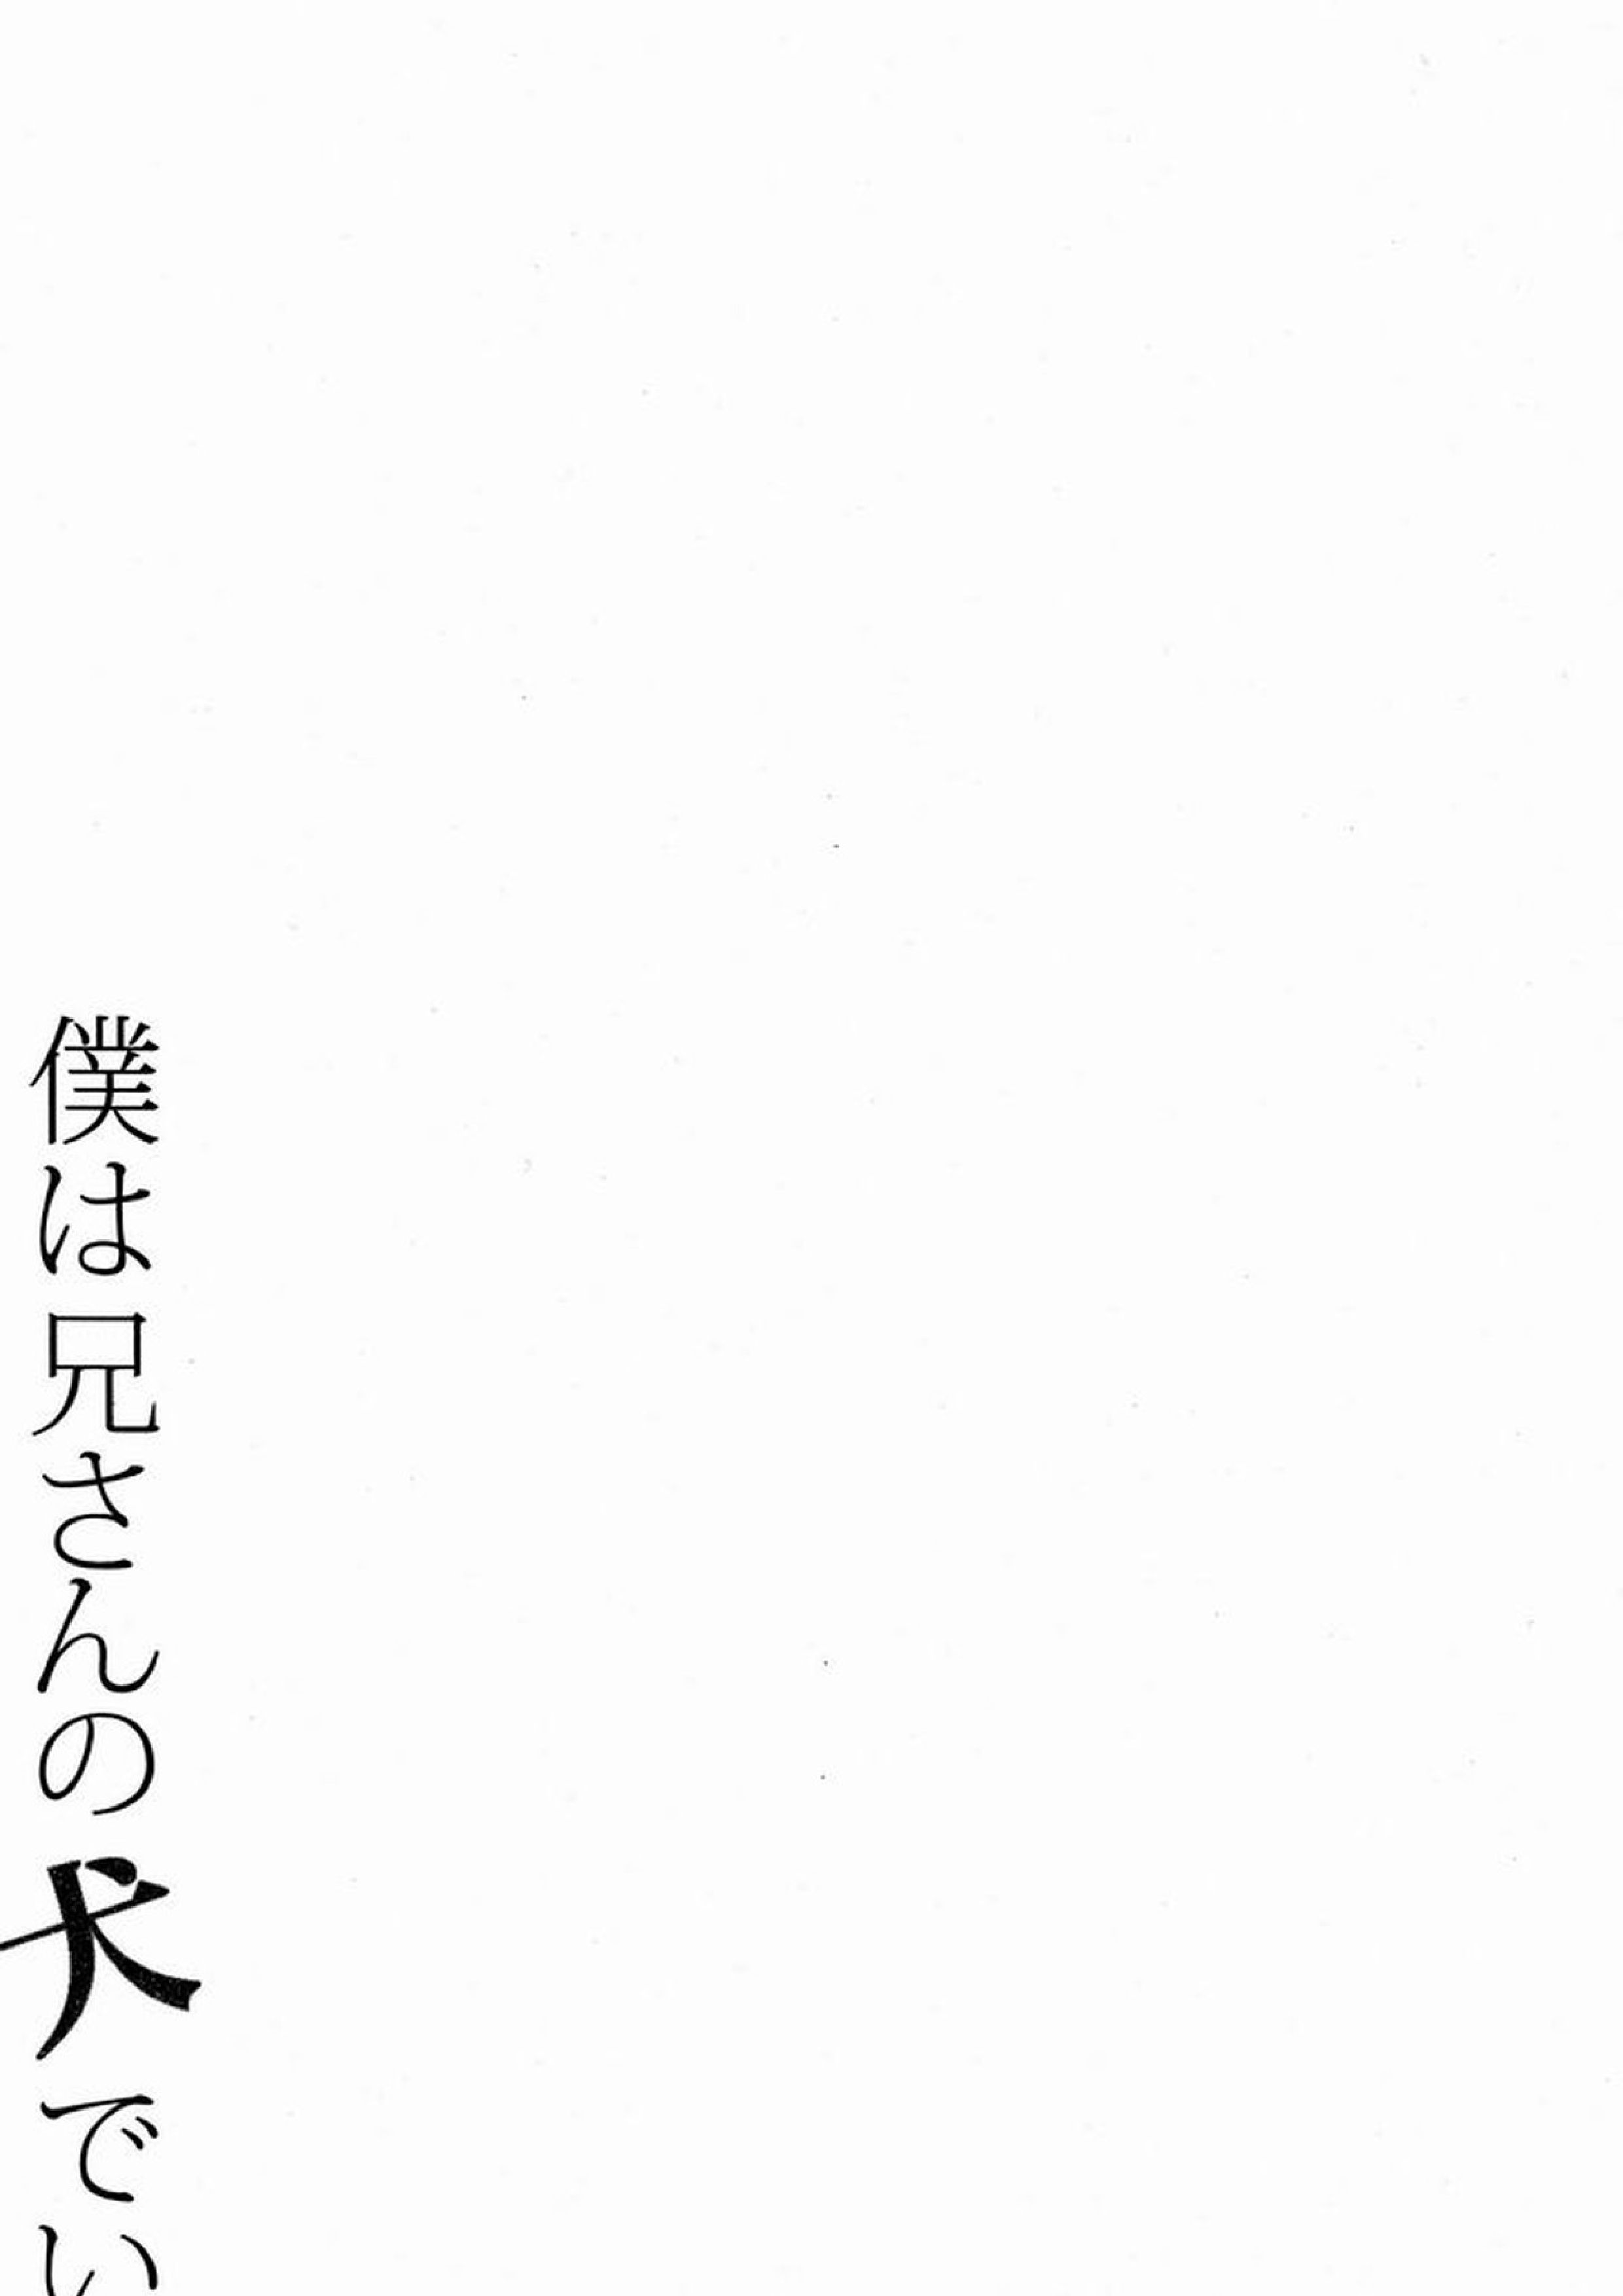 僕は兄さんの犬でい